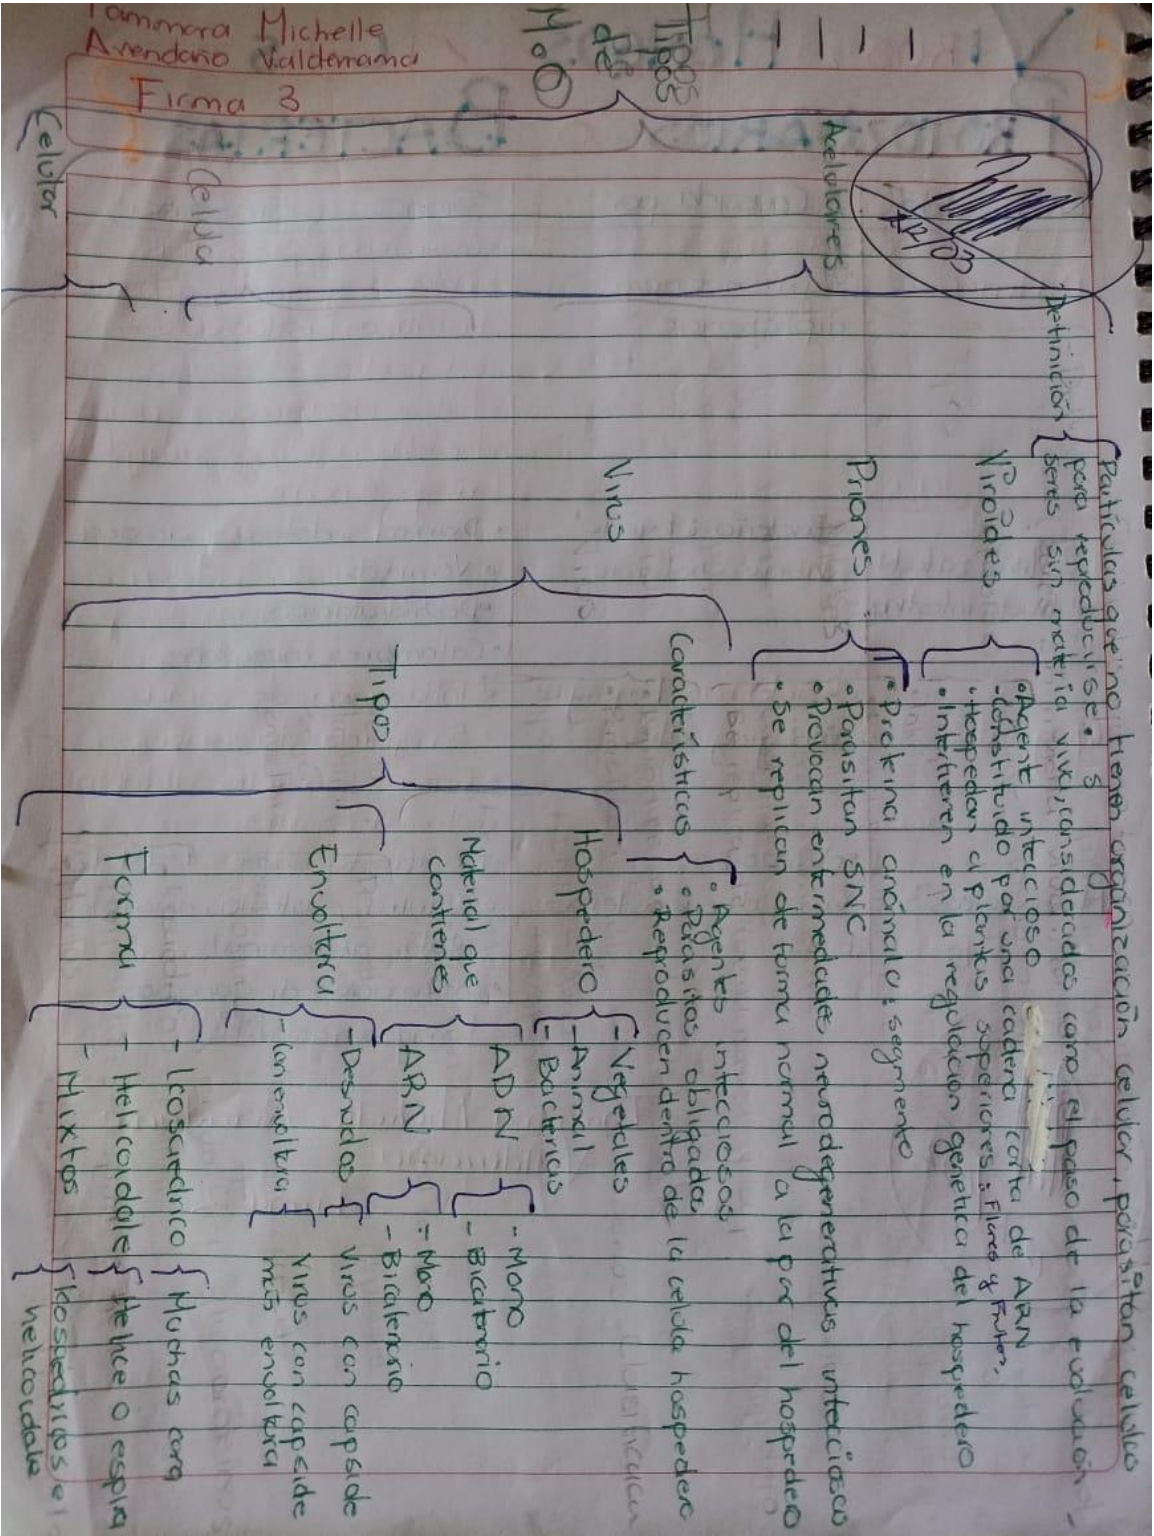 Tammara Michelle
Avendaño Valderrama
Firma 3
Tipos
de
M.O
Acelulares
Definición
Partículas que no tienen organización celular, parasitan células
para reproducirse.
seres sin materia viva, considerados como el paso de la evolución
Viroides
• Agente infeccioso
- Constituido por una cadena corta de ARN
• Hospedan a plantas superiores: Flores y Frutos.
• Interfieren en la regulación genética del hospedero
Priones
• Proteina anómala: segmento
• Parasitan SNC
• Provocan enfermedades neurodegenerativas infecciosas
• Se replican de forma normal a la par del hospedero
Virus
Características
• Agentes infecciosos
• Parásitos obligados
• Reproducen dentro de la celula hospedero
Tipos
Hospedero
- Vegetales
- Animal
- Bacterias
Material que
contienen
ADN
- Mono
- Bicatenario
ARN
- Mono
- Bicatenario
Envoltura
- Desnudos
Virus con capside
- Con envoltura
Virus con capside
mas envoltura
Forma
- Icosaedrico
Muchas cara
- Helicoidale
Helice o espira
- Mixtos
Icosaedricos
helicoidale
Celular
Celula
12/03